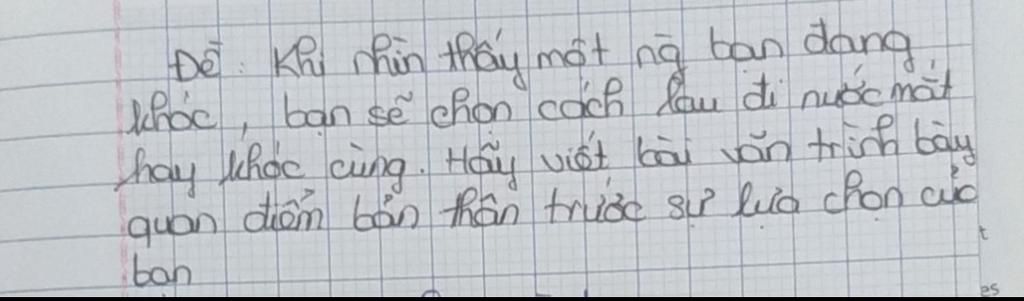 Đề: Khi nhìn thấy một ng̀ bạn đang
khóc, bạn sẽ chọn cách lau đi nước mắt
hay khóc cùng. Hãy viết bài văn trình bày
quan điểm bản thân trước sự lựa chọn của
bạn
t
es